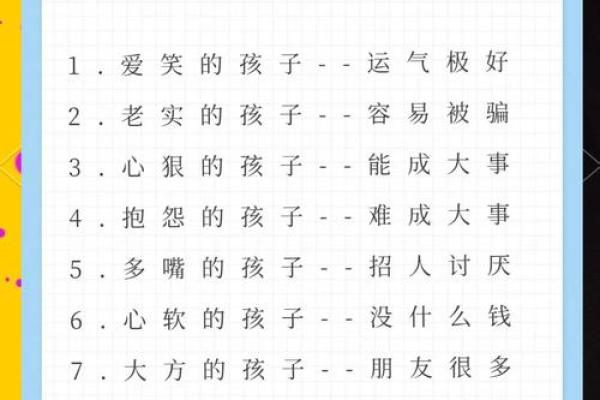 1.爱笑的孩子--运气极好
2.老实的孩子--容易被骗
3.心狠的孩子--能成大事
4.抱怨的孩子--难成大事
5.多嘴的孩子--招人讨厌
6.心软的孩子--没什么钱
7.大方的孩子--朋友很多